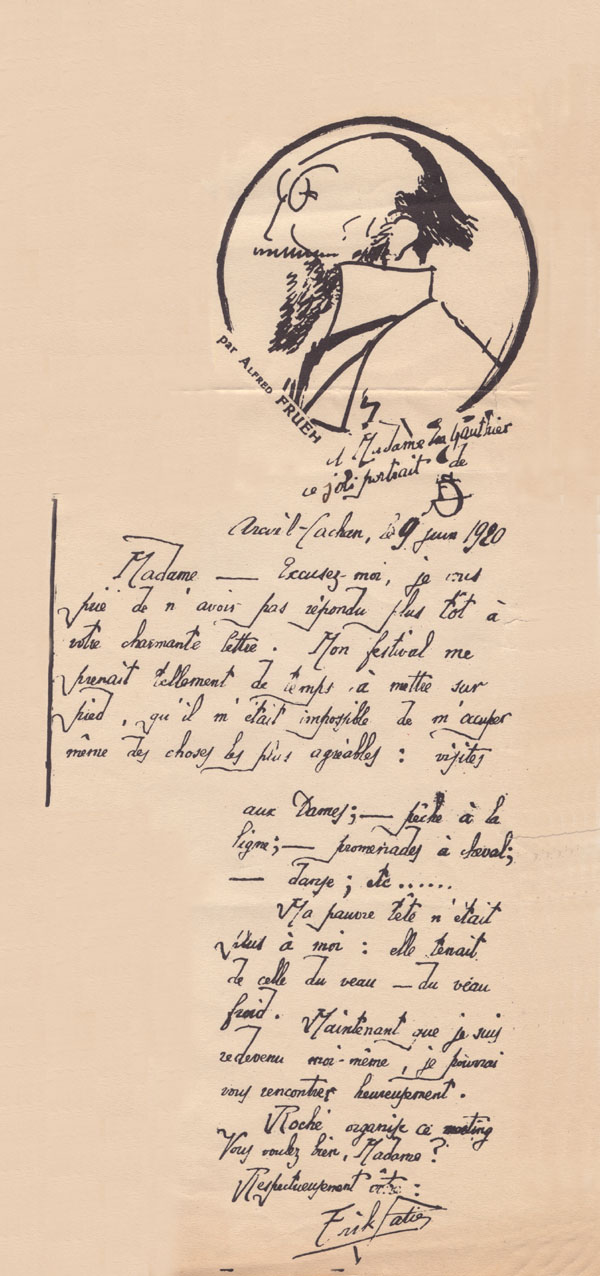 par ALFRED FRUEH
A Madame Eva Gauthier
ce joli portrait de
ES
Arcueil-Cachan, le 9 juin 1920
Madame — Excusez-moi, je vous
prie de n'avoir pas répondu plus tôt à
votre charmante lettre. Mon festival me
prenait tellement de temps à mettre sur
pied, qu'il m'était impossible de m'occuper
même des choses les plus agréables : visites
aux Dames; — pêche à la
ligne; — promenades à cheval;
— danse; etc......
Ma pauvre tête n'était
plus à moi : elle tenait
de celle du veau — du veau
froid. Maintenant que je suis
redevenu moi-même, je pourrai
vous rencontrer heureusement.
Roché organise ce meeting
Vous voulez bien, Madame?
Respectueusement vôtre :
Erik Satie